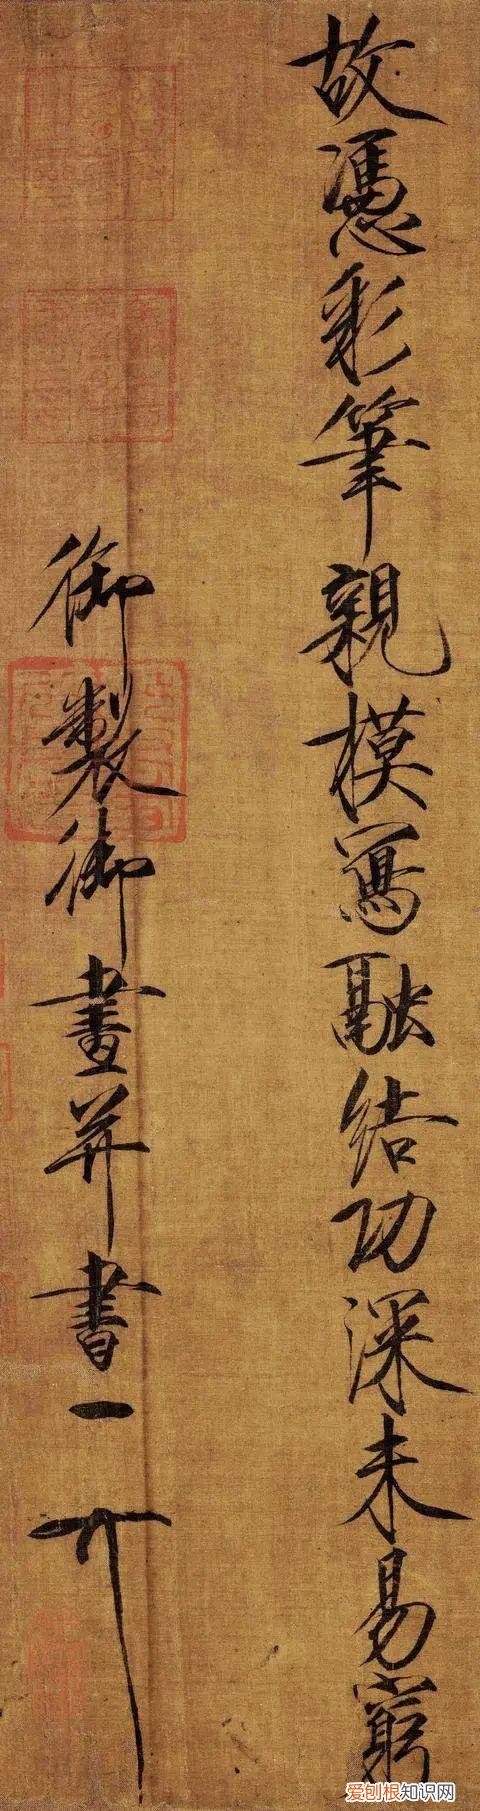 故憑彩筆親模寫融結功深未易窮
御製御畫并書
爱刨根知识网